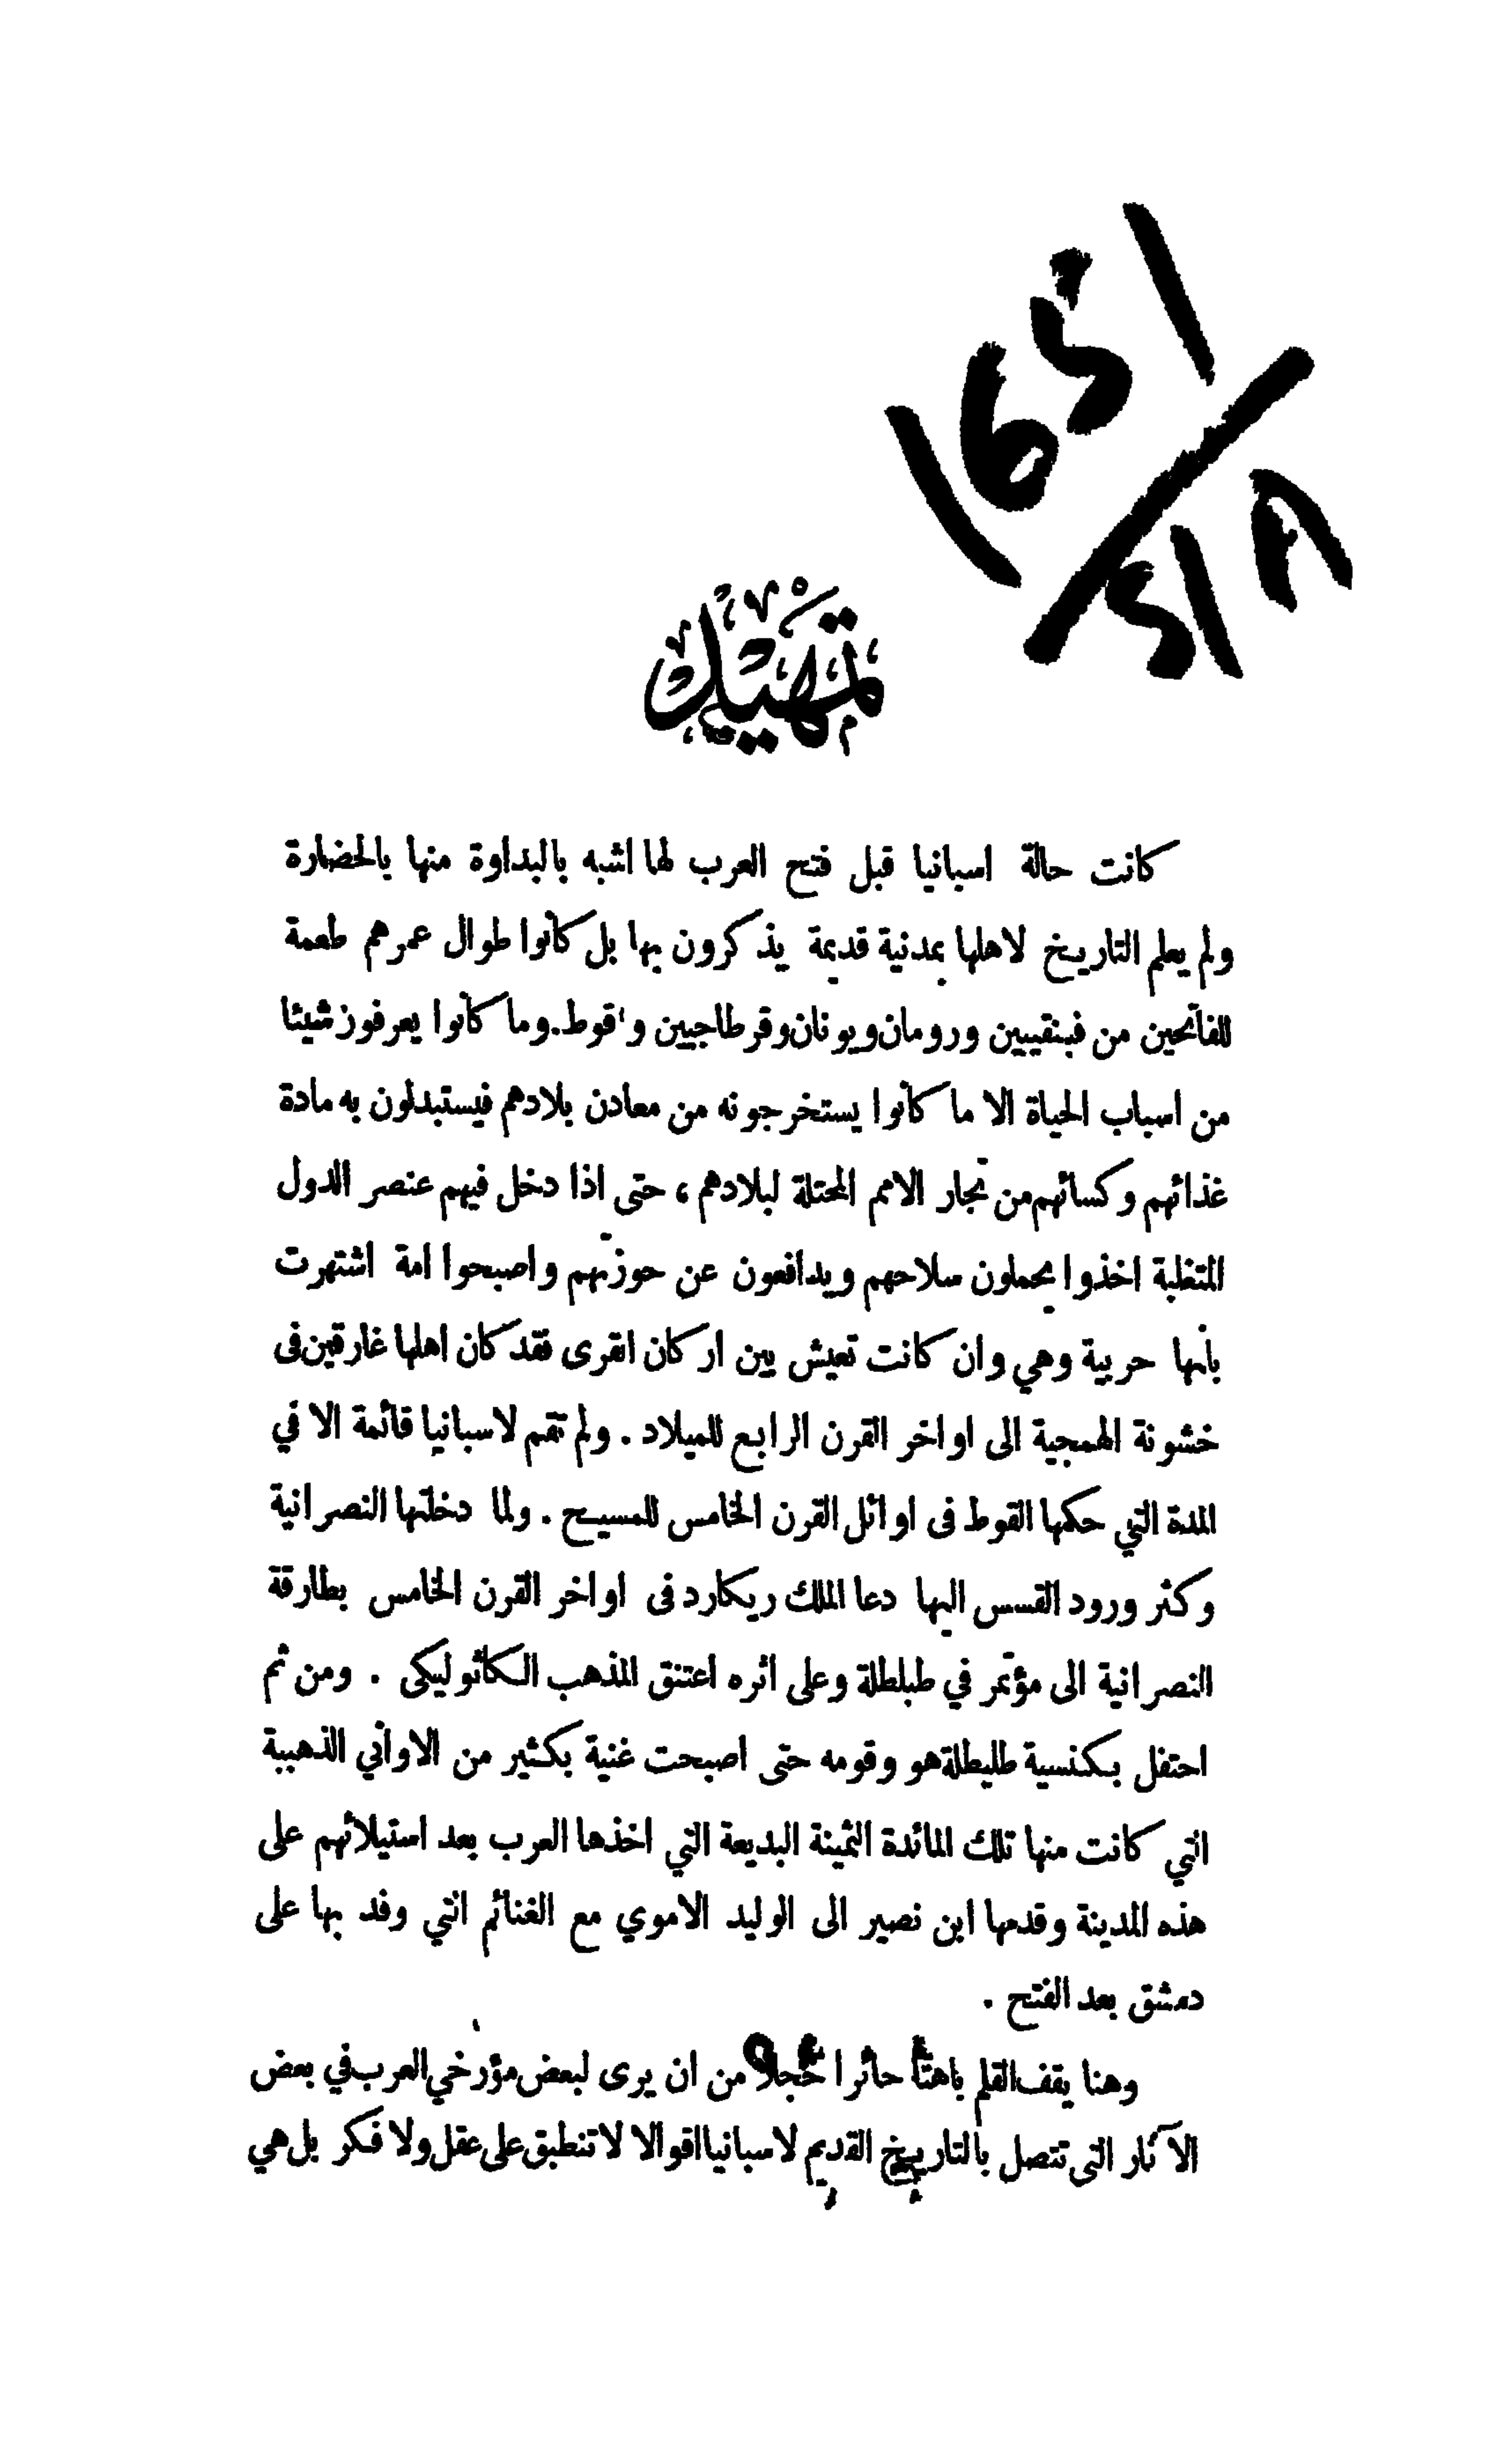 تمهيد
كانت حالة اسبانيا قبل فتح العرب لها اشبه بالبداوة منها بالحضارة
ولم يعلم التاريخ لاهلها بمدنية قديمة يذكرون بها بل كانوا طوال عمرهم طعمة
للفاتحين من فينقيين ورومان ويونان وقرطاجيين وقوط. وما كانوا يعرفون شيئا
من اسباب الحياة الا ما كانوا يستخرجونه من معادن بلادهم فيستبدلون به مادة
غذائهم وكسائهم من تجار الامم المحتلة لبلادهم ، حتى اذا دخل فيهم عنصر الدول
المتغلبة اخذوا يحملون سلاحهم ويدافعون عن حوزتهم واصبحوا امة اشتهرت
بانها حربية وهي وان كانت تعيش بين اركان القرى فقد كان اهلها غارقين فى
خشونة الهمجية الى اواخر القرن الرابع للميلاد . ولم تقم لاسبانيا قائمة الا في
المدة التي حكمها القوط فى اوائل القرن الخامس للمسيح . ولما دخلتها النصرانية
وكثر ورود القسس اليها دعا الملك ريكارد فى اواخر القرن الخامس بطارقة
النصرانية الى مؤتمر في طبلطلة وعلى اثره اعتنق المذهب الكاثوليكى . ومن ثم
احتفل بكنسية طليطلة هو وقومه حتى اصبحت غنية بكثير من الاواني الذهبية
التي كانت منها تلك المائدة الثمينة البديعة التي اخذها العرب بعد استيلائهم على
هذه المدينة وقدمها ابن نصير الى الوليد الاموي مع الغنائم التي وفد بها على
دمشق بعد الفتح .
وهنا يقف القلم باهتا حائرا خجلا من ان يرى لبعض مؤرخي العرب في بعض
الآثار التى تتصل بالتاريخ القديم لاسبانيا اقوالا لا تنطبق على عقل ولا فكر بل هي